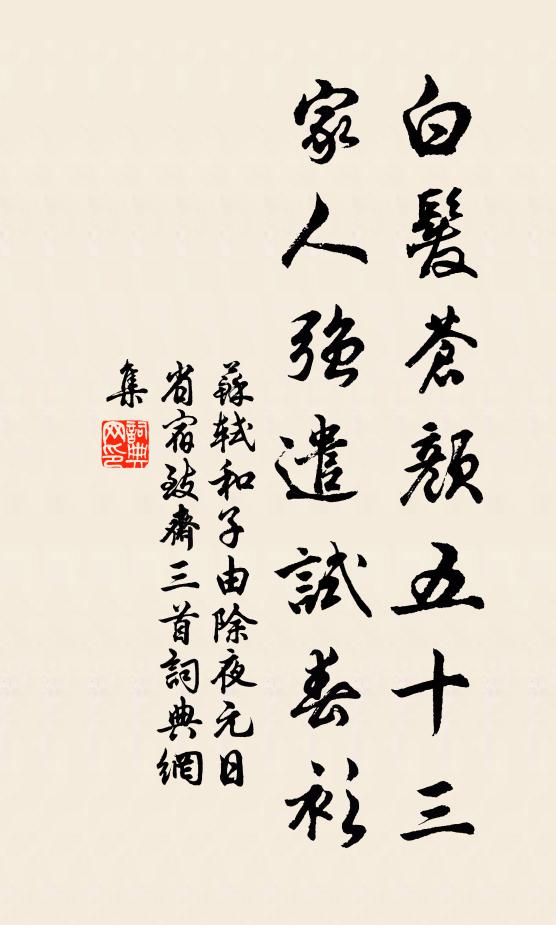 白髮蒼顏五十三
家人強遣試春衫
蘇軾和子由除夜元日
省宿致齋三首詞典網
集
詞典
网印